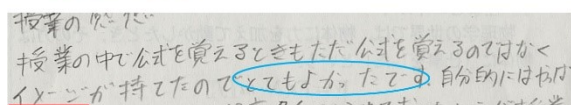 授業の
授業の中で公式を覚えるときもただ公式を覚えるのではなく
イメージが持てたのでとてもよかったです。自分的にはやは